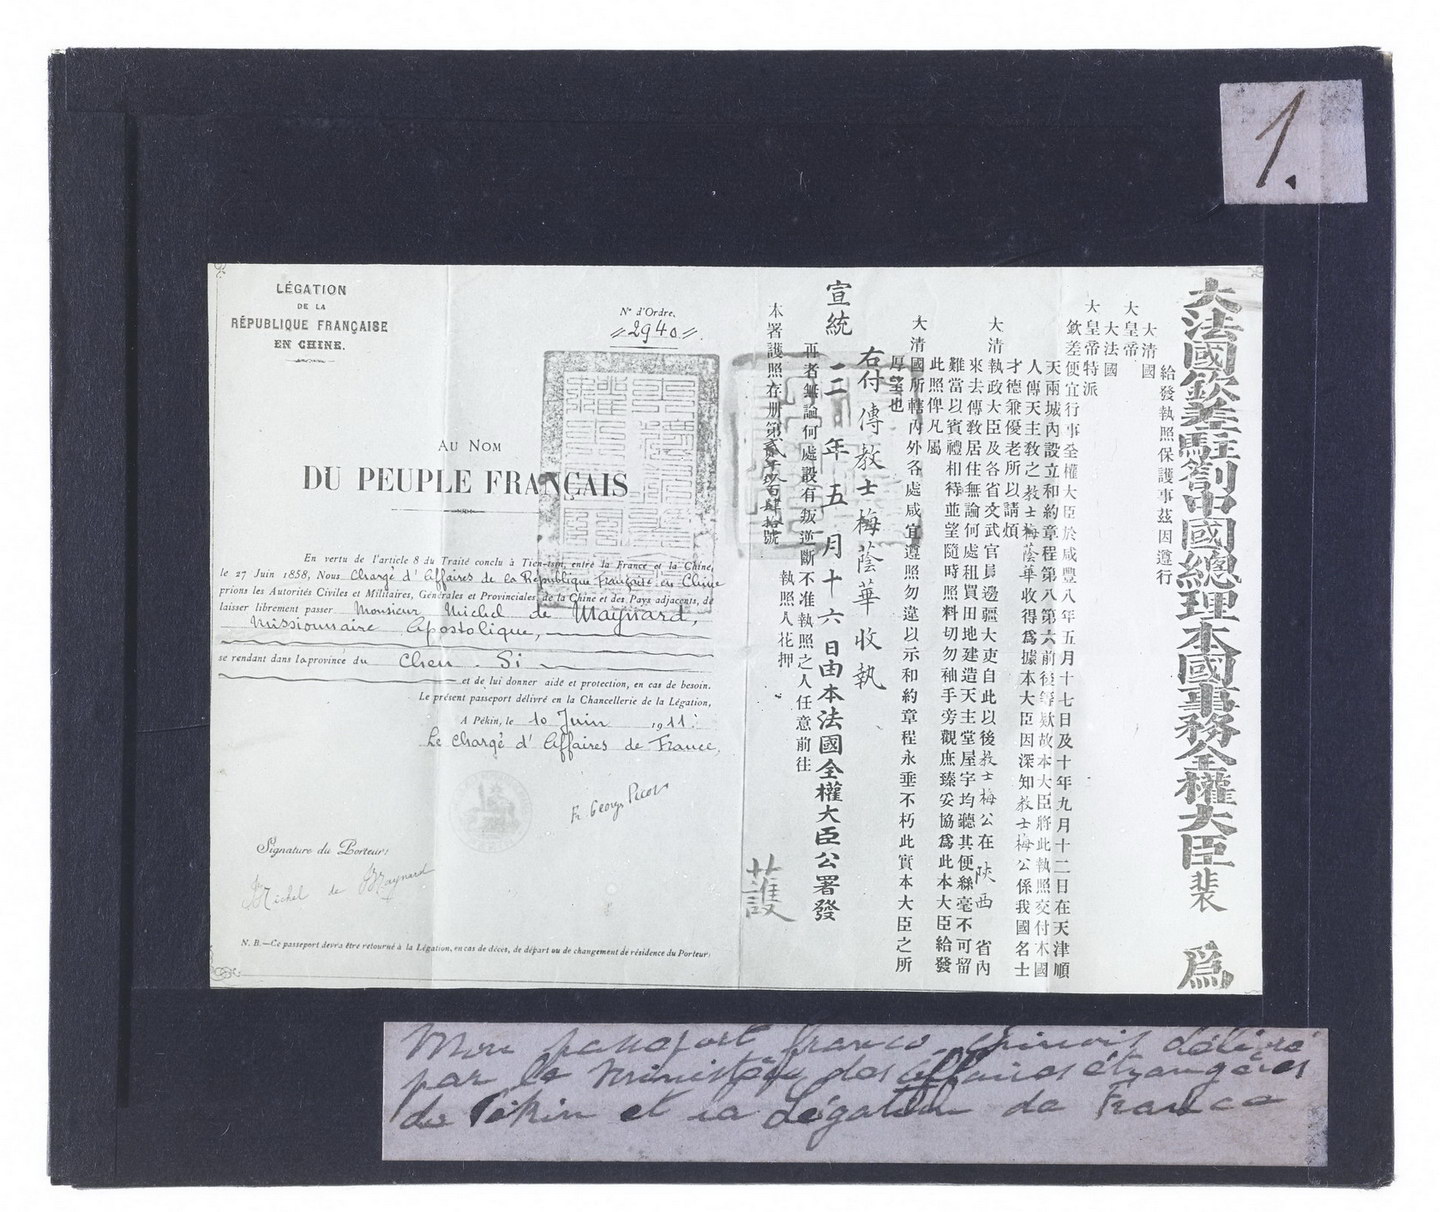 1.
LÉGATION
DE LA
RÉPUBLIQUE FRANÇAISE
EN CHINE.
N° d'Ordre.
2940
AU NOM
DU PEUPLE FRANÇAIS
En vertu de l'article 8 du Traité conclu à Tien-tsin, entre la France et la Chine,
le 27 Juin 1858, Nous Chargé d'Affaires de la République Française en Chine
prions les Autorités Civiles et Militaires, Générales et Provinciales, de la Chine et des Pays adjacents, de
laisser librement passer Monsieur Michel de Maynard,
Missionnaire Apostolique,
se rendant dans la province du Chen-Si
et de lui donner aide et protection, en cas de besoin.
Le présent passeport délivré en la Chancellerie de la Légation,
A Pékin, le 10 Juin 1911.
Le Chargé d'Affaires de France,
Signature du Porteur:
Michel de Maynard
N. B.—Ce passeport devra être retourné à la Légation, en cas de décès, de départ ou de changement de résidence du Porteur.
大法國欽差駐劄中國總理本國事務全權大臣裴 爲
給發執照保護事茲因遵行
大清國
大皇帝
大法國
大皇帝特派
欽差便宜行事全權大臣於咸豐八年五月十七日及十年九月十二日在天津順
天兩城內設立和約章程第八第六前後等欵故本大臣將此執照交付本國
人傳天主教之教士梅蔭華收得爲據本大臣因深知教士梅公係我國名士
才德兼優老所以請煩
大清執政大臣及各省文武官員邊疆大吏自此以後教士梅公在陝西省內
來去傳教居住無論何處租買田地建造天主堂屋宇均聽其便絲毫不可留
難當以賓禮相待並望隨時照料切勿袖手旁觀庶臻妥協爲此本大臣給發
此照俾凡屬
大清國所轄內外各處咸宜遵照勿違以示和約章程永垂不朽此實本大臣之所
厚望也
右付傳教士梅蔭華收執
宣統三年五月十六日由本法國全權大臣公署發
再者無論何處設有叛逆斷不准執照之人任意前往
執照人花押
本署護照在册第貳千玖百肆拾號
護
Mon passeport franco-chinois délivré
par le Ministère des Affaires étrangères
de Pékin et la Légation de France